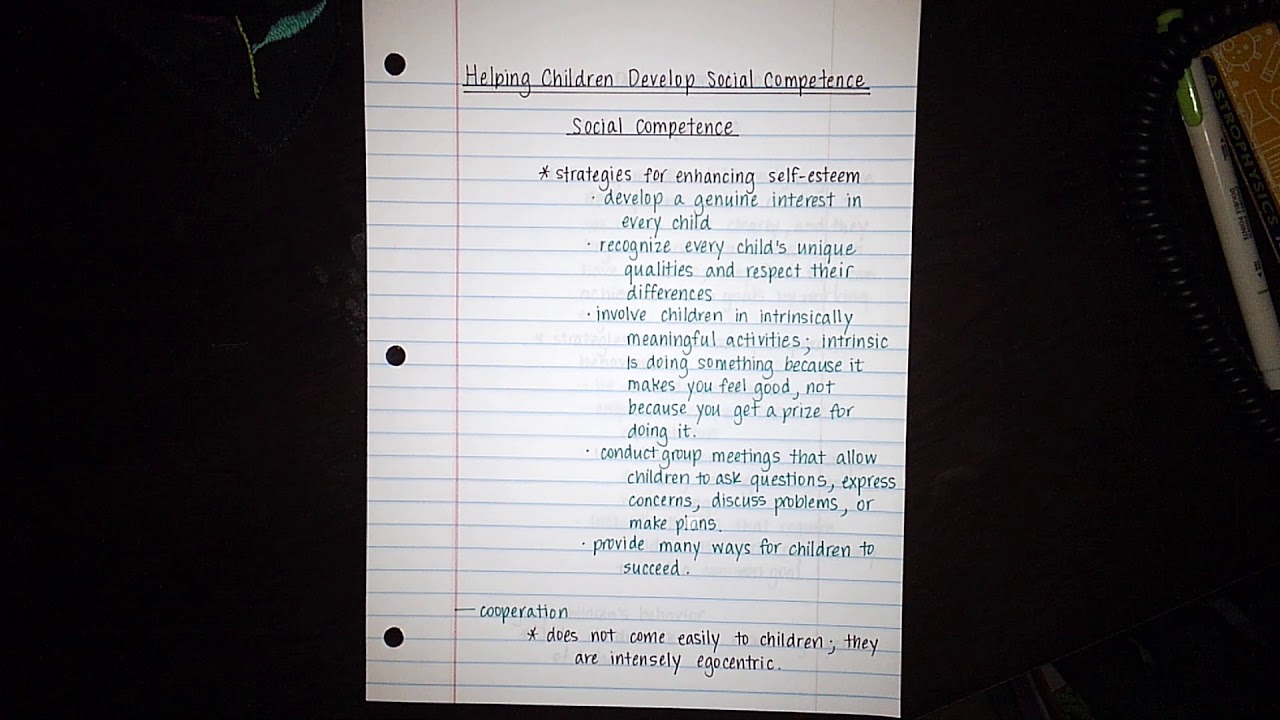 Helping Children Develop Social Competence
Social Competence
* strategies for enhancing self-esteem
· develop a genuine interest in
every child
· recognize every child's unique
qualities and respect their
differences
· involve children in intrinsically
meaningful activities; intrinsic
is doing something because it
makes you feel good, not
because you get a prize for
doing it.
· conduct group meetings that allow
children to ask questions, express
concerns, discuss problems, or
make plans.
· provide many ways for children to
succeed.
— cooperation
* does not come easily to children; they
are intensely egocentric.
ASTROPHYSICS